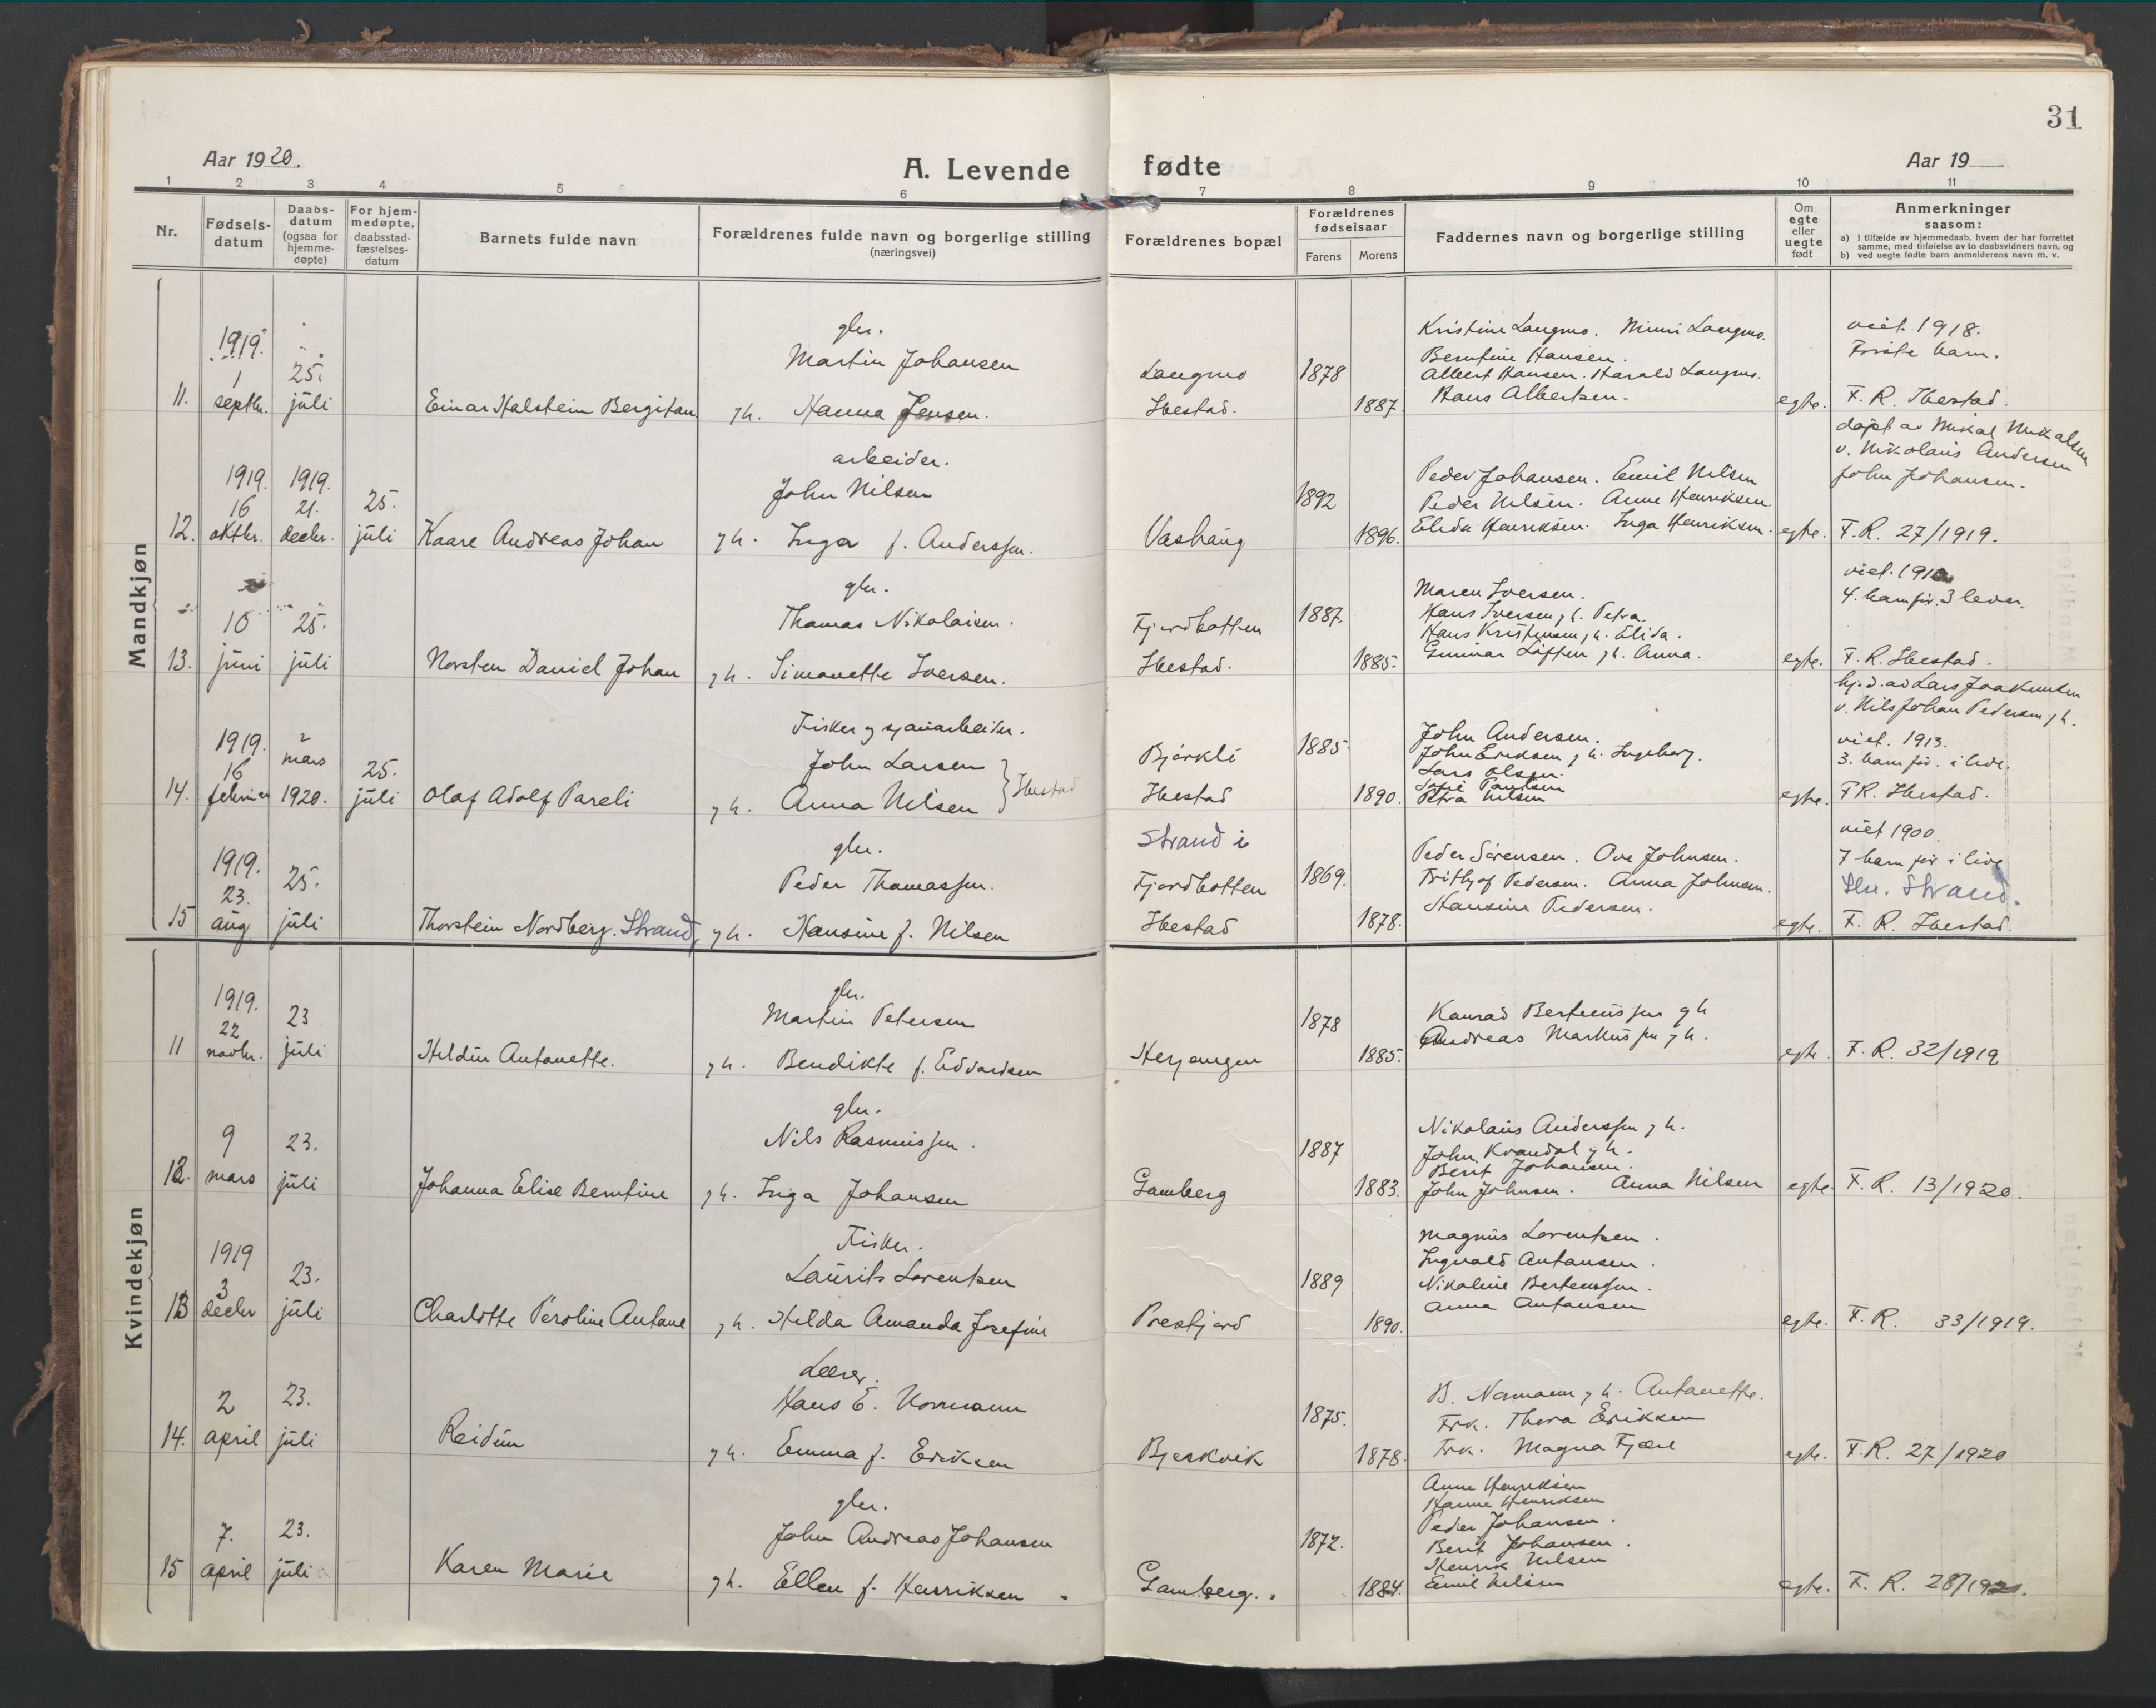 31
Aar 1920.
A. Levende fødte
Aar 19
1 2 3 4 5 6 7 8 9 10 11
Nr.
Fødsels-
datum
Daabs-
datum
(ogsaa for
hjemme-
døpte)
For hjem-
medøpte,
daabsstad-
fæstelses-
datum
Barnets fulde navn
Forældrenes fulde navn og borgerlige stilling
(næringsvei)
Forældrenes bopæl
Forældrenes
fødselsaar
Farens Morens
Faddernes navn og borgerlige stilling
Om
egte
eller
uegte
født
Anmerkninger
saasom:
a) I tilfælde av hjemmedaab, hvem der har forrettet
samme, med tilføielse av to daabsvidners navn, og
b) ved uegte fødte barn anmelderens navn m. v.
Mandkjøn
11.
1919.
1
septbr.
25.
juli
Einar Halstein Bergitan
gbr.
Martin Johansen
g h. Hanna Jensen.
Langmo
Ibestad.
1878
1887.
Kristine Langmo. Minni Langmo.
Berntine Hansen.
Albert Hansen. Harald Langmo.
Hans Albertsen.
egte.
viet. 1918.
Første barn.
F. R. Ibestad.
12.
1919.
16
oktbr.
1919.
21.
decbr.
25.
juli
Kaare Andreas Johan
arbeider.
John Nilsen
g h. Inga f. Anderssen.
Vashaug
1892
1896.
Peder Johansen. Emil Nilsen
Peder Nilsen. Anne Henriksen.
Elida Henriksen. Inga Henriksen.
egte.
døpt av Mikal Mikalsen
v. Nikolaus Andersen
John Johansen.
F. R. 27/1919.
13.
10
juni
25.
juli
Norsten Daniel Johan
gbr.
Thomas Nikolaisen.
g h. Simonette Iversen.
Fjordbotten
Ibestad.
1887.
1885.
Maren Iversen.
Hans Iversen g h. Petra.
Hans Kristensen g h. Elida.
Gunnar Løften g h. Anna.
egte.
4. barn før. 3 lever.
F. R. Ibestad.
14.
1919.
16
februar
2
mars
1920.
25.
juli
Olaf Adolf Pareli
Fisker og sjauarbeider.
John Larsen
g h. Anna Nilsen
} Ibestad
Bjørkli
Ibestad
1885
1890.
John Andersen.
John Eriksen g h. Ingeborg.
Lars Olsen.
Petra Nilsen
egte.
hj. d. av Lars Joakimsen
v. Nils Johan Pedersen g h.
viet. 1913.
3. barn før. i live.
F R. Ibestad.
15
1919.
23.
aug
25.
juli
Thorstein Nordberg. Strand,
gbr.
Peder Thomassen.
g h. Hansine f. Nilsen
Strand i
Fjordbotten
Ibestad
1869.
1878.
Peder Sørensen. Ove Johnsen.
Frithjof Pedersen. Anna Johnsen.
Hansine Pedersen.
egte.
viet 1900.
7 barn før i live
Strand.
F. R. Ibestad.
Kvindekjøn
11
1919.
22
novbr.
23
juli
Heldur Antonette.
gbr.
Martin Petersen
g h. Bendikte f. Edvardsen
Herjangen
1878
1885.
Konrad Berteussen g h
Andreas Markussen g h.
egte.
F. R. 32/1919
12.
9
mars
23.
juli
Johanna Elise Berntine
gbr.
Nils Rasmussen.
g h. Inga Johansen
Gamberg
1887
1883.
Nikolaus Anderssen g h.
John Kvandal g h.
Berit Johansen.
John Johnsen. Anna Nilsen
egte.
F. R. 13/1920.
13
1919
3
decbr
23.
juli
Charlotte Peroline Antane
Fisker.
Laurits Lorentsen
g h. Hilda Amanda Josefine
Prestjord
1889
1890.
Magnus Lorentsen.
Ingvald Antonsen.
Nikoline Berteussen.
Anna Antonsen
egte.
F. R. 33/1919.
14.
2
april
23.
juli
Reidun
Lærer.
Hans E. Normann
g h. Emma f. Eriksen
Bjerkvik
1875.
1878.
B. Normann g h. Antonette.
Frk. Thora Eriksen
Frk. Magna Fjære
egte.
F. R. 27/1920
15
7.
april
23.
juli
Karen Marie
gbr.
John Andreas Johansen
g h. Ellen f. Henriksen
Gamberg.
1872.
1884.
Anne Henriksen
Hanne Henriksen
Peder Johansen.
Berit Johansen.
Henrik Nilsen
Emil Nilsen
egte.
F. R. 28/1920.